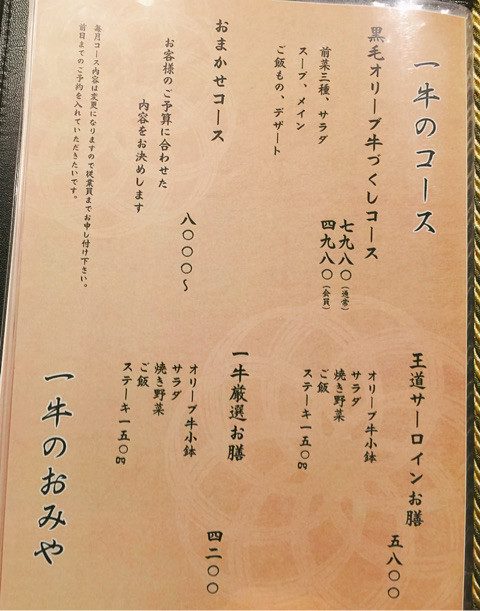 一牛のコース
黒毛オリーブ牛づくしコース
前菜三種、サラダ
スープ、メイン
ご飯もの、デザート
七九八〇（通常）
四九八〇（会員）
おまかせコース
お客様のご予算に合わせた
内容をお決めします
八〇〇〇〜
毎月コース内容は変更になりますので従業員までお申し付け下さい。
前日までのご予約を入れていただきたいです。
王道サーロインお膳
五八〇〇
オリーブ牛小鉢
サラダ
焼き野菜
ご飯
ステーキ一五〇g
一牛厳選お膳
四二〇〇
オリーブ牛小鉢
サラダ
焼き野菜
ご飯
ステーキ一五〇g
一牛のおみや